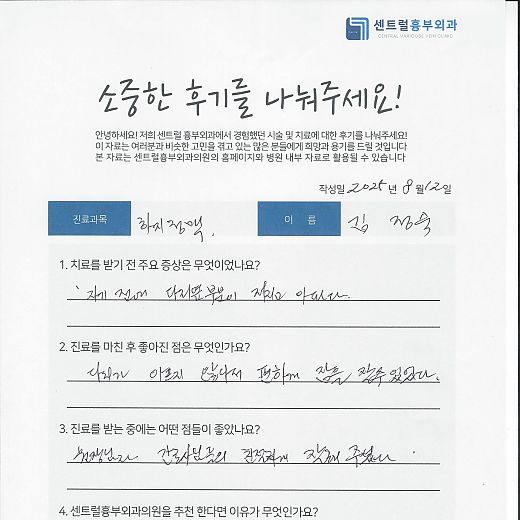 센트럴흉부외과
CENTRAL VARICOSE VEIN CLINIC
소중한 후기를 나눠주세요!
안녕하세요! 저희 센트럴 흉부외과에서 경험했던 시술 및 치료에 대한 후기를 나눠주세요!
이 자료는 여러분과 비슷한 고민을 겪고 있는 많은 분들에게 희망과 용기를 드릴 것입니다
본 자료는 센트럴흉부외과의원의 홈페이지와 병원 내부 자료로 활용될 수 있습니다
작성일 2025년 8월 12일
진료과목 하지정맥. 이 름 김 정숙
1. 치료를 받기 전 주요 증상은 무엇이었나요?
자기 전에 다리 부분이 저리고 아팠다.
2. 진료를 마친 후 좋아진 점은 무엇인가요?
다리가 아프지 않아서 편하게 잠을 잘수 있었다.
3. 진료를 받는 중에는 어떤 점들이 좋았나요?
간호사님들의 친절하게 잘해 주셨다
4. 센트럴흉부외과의원을 추천 한다면 이유가 무엇인가요?